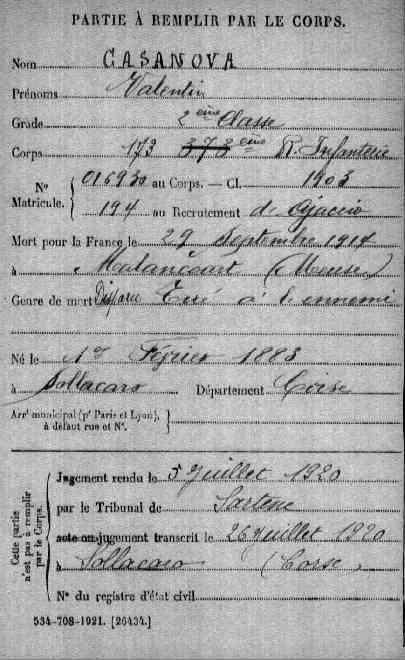 PARTIE À REMPLIR PAR LE CORPS.
Nom CASANOVA
Prénoms Valentin
Grade 2 ème Classe
Corps 173 373 ème R. Infanterie
Nº Matricule. { 016930 au Corps. — Cl. 1903
194 au Recrutement d'Ajaccio
Mort pour la France le 29 Septembre 1914
à Malancourt (Meuse)
Genre de mort Disparu Tué à l'ennemi
Né le 1er Février 1883
à Sollacaro Département Corse
Arrt municipal (pr Paris et Lyon), à défaut rue et Nº. }
Cette partie n'est pas à remplir par le Corps.
Jugement rendu le 5 Juillet 1920
par le Tribunal de Sartène
acte ou jugement transcrit le 26 Juillet 1920
à Sollacaro (Corse)
Nº du registre d'état civil
534-708-1921. [26434.]